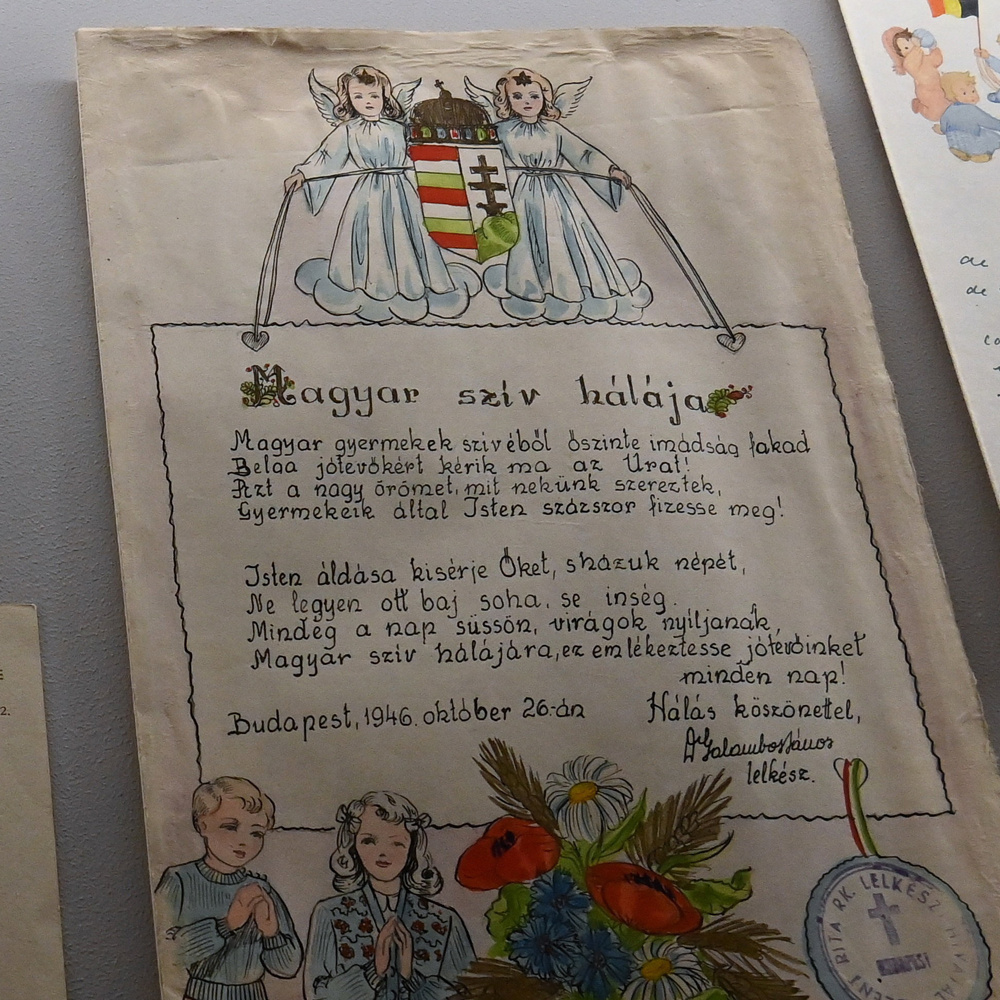 Magyar szív hálája
Magyar gyermekek szívéből őszinte imádság fakad
Belga jótevőkért kérik ma az Urat!
Azt a nagy örömet, mit nekünk szereztek,
Gyermekeik által Isten százszor fizesse meg!
Isten áldása kisérje Őket, s házuk népét,
Ne legyen ott baj soha, se inség.
Mindég a nap süssön, virágok nyiljanak,
Magyar szív hálájára, ez emlékeztesse jótevőinket
minden nap!
Budapest, 1946. október 26-án
Hálás köszönettel,
Dr Galambos János
lelkész.
RITA RK. LELKÉSZ
BUDAPEST
de
2.